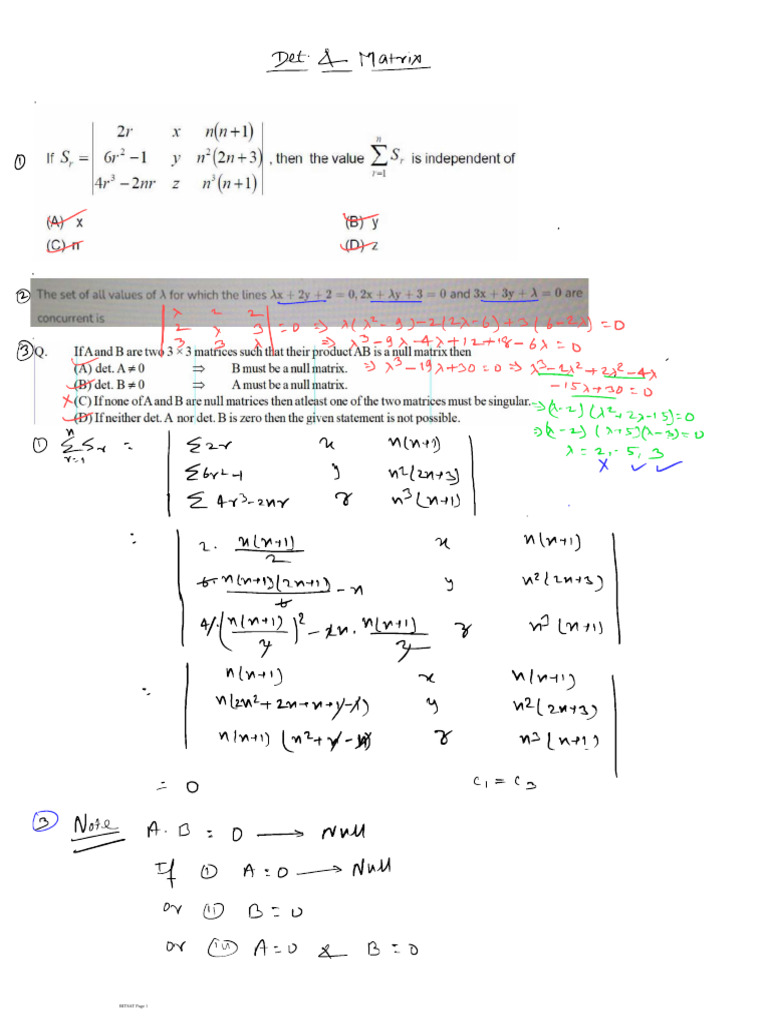 Det. & Matrix
① If S_r = | 2r x n(n+1) |
| 6r² −1 y n²(2n+3) | , then the value Σ_{r=1}^{n} S_r is independent of
| 4r³ −2nr z n³(n+1) |
(A) x (B) y
(C) n (D) z
② The set of all values of λ for which the lines λx + 2y + 2 = 0, 2x + λy + 3 = 0 and 3x + 3y + λ = 0 are
concurrent is
| λ 2 2 |
| 2 λ 3 | = 0 ⇒ λ(λ²−9)−2(2λ−6)+3(6−2λ)=0
| 3 3 λ | ⇒ λ³−9λ−4λ+12+18−6λ=0
③ Q. If A and B are two 3 × 3 matrices such that their product AB is a null matrix then
(A) det. A ≠ 0 ⇒ B must be a null matrix. ⇒ λ³−19λ+30=0 ⇒ λ³−2λ²+2λ²−4λ
(B) det. B ≠ 0 ⇒ A must be a null matrix. −15λ+30=0
x (C) If none of A and B are null matrices then atleast one of the two matrices must be singular. ⇒(λ−2)(λ²+2λ−15)=0
(D) If neither det. A nor det. B is zero then the given statement is not possible. ⇒(λ−2)(λ+5)(λ−3)=0
λ = 2, −5, 3
x ✓ ✓
① Σ_{r=1}^{n} S_r = | Σ2r x n(n+1) |
| Σ6r²−1 y n²(2n+3) |
| Σ 4r³−2nr z n³(n+1) |
= | 2. n(n+1)/2 x n(n+1) |
| 6. n(n+1)(2n+1)/6 − n y n²(2n+3) |
| 4.(n(n+1)/2)² − 2n. n(n+1)/2 z n³(n+1) |
= | n(n+1) x n(n+1) |
| n(2n²+2n+n+1−1) y n²(2n+3) |
| n(n+1)(n²+n−n) z n³(n+1) |
= 0 C₁ = C₃
③ Note A.B = 0 → Null
If (i) A=0 → Null
or (ii) B=0
or (iii) A=0 & B=0
BITSAT Page 1